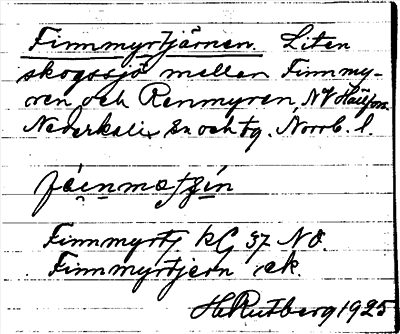 Finnmyrtjärnen. Liten
skogssjö mellan Finnmy-
ren och Renmyren, NV
Nederkalix sn och tg. Norrb. l.
Finnmyrtj. kG 37 NO.
Finnmyrtjern ek.
H. Rutberg 1925